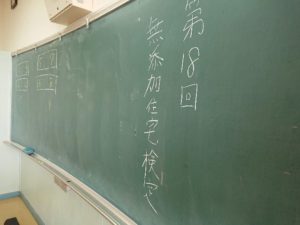 第18回
無添加住宅検定